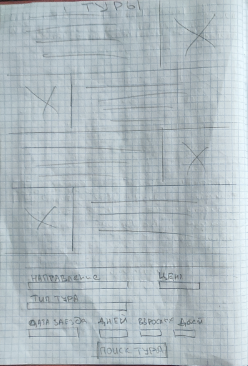 ТУРЫ
НАПРАВЛЕНИЕ ЦЕНА
ТИП ТУРА
ДАТА ЗАЕЗДА ДНЕЙ ВЗРОСЛЫХ ДЕТЕЙ
ПОИСК ТУРА